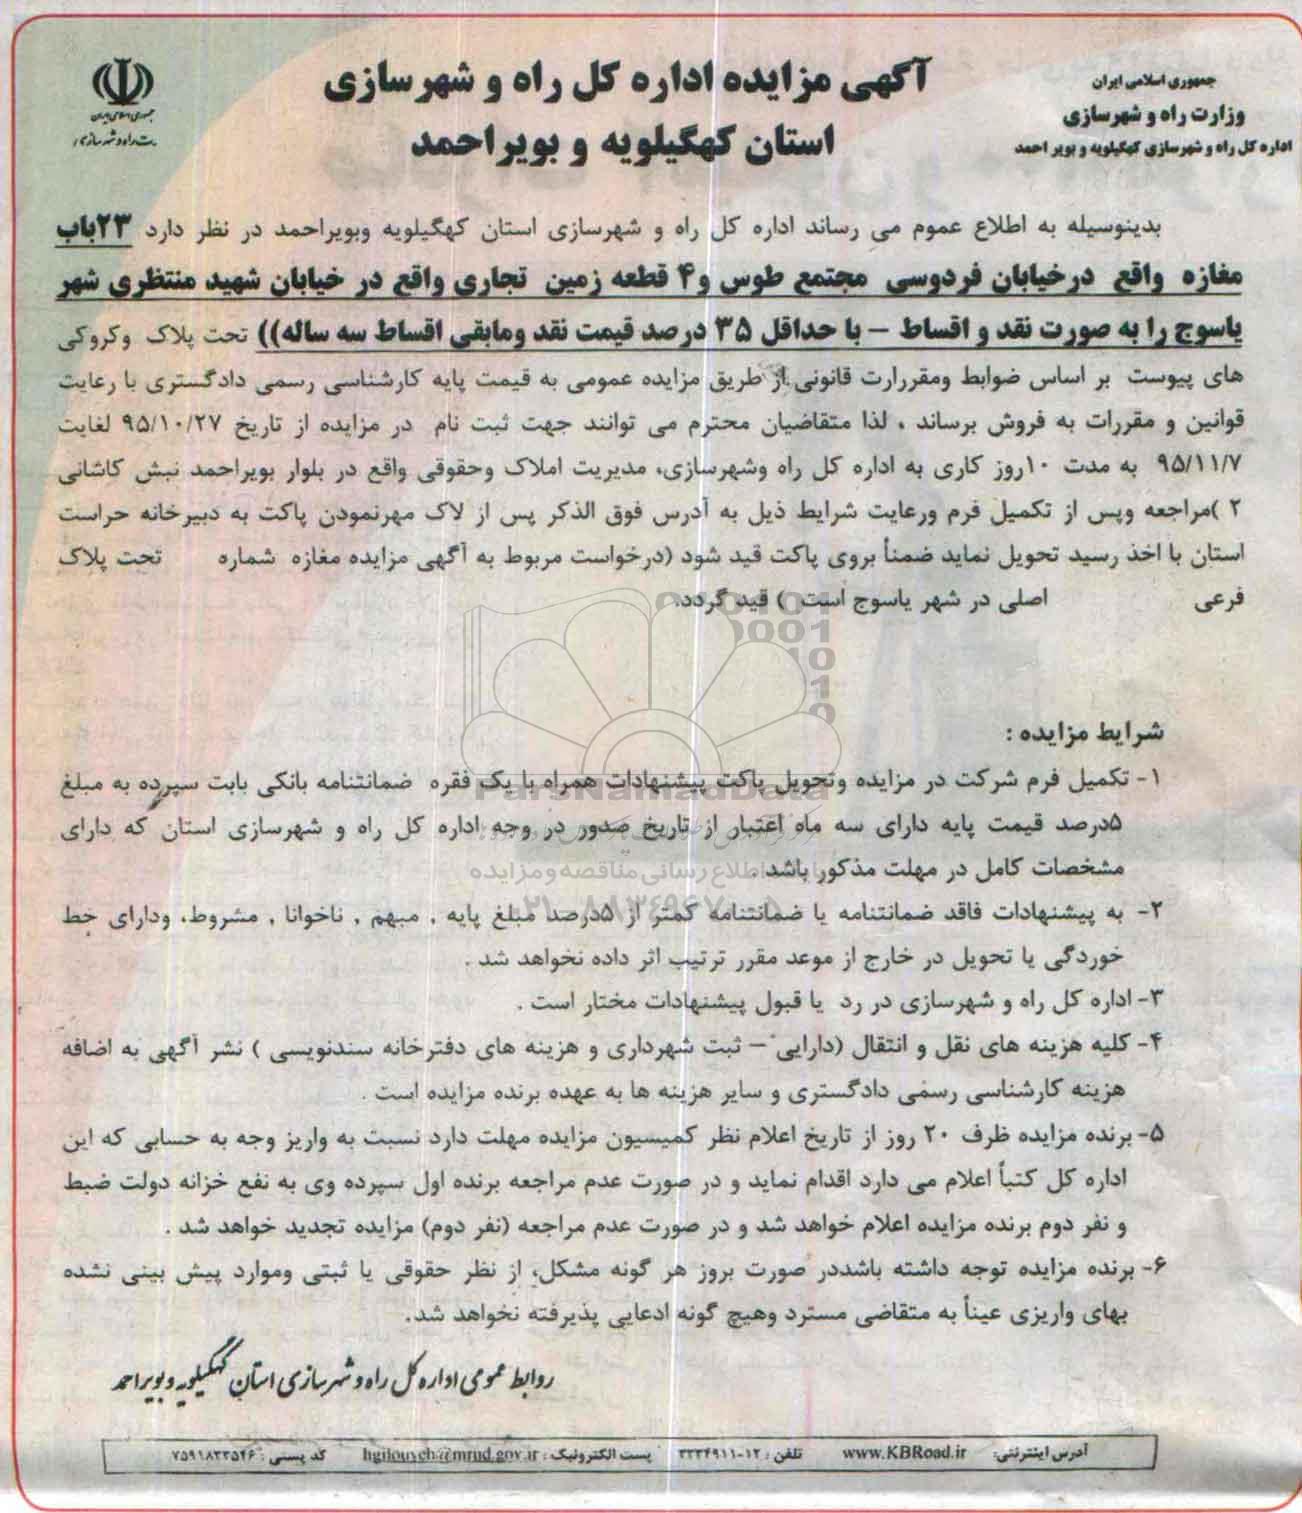 جمهوری اسلامی ایران
وزارت راه و شهرسازی
اداره کل راه و شهرسازی کهگیلویه و بویر احمد
آگهی مزایده اداره کل راه و شهرسازی
استان کهگیلویه و بویراحمد
جمهوری اسلامی ایران
بدینوسیله به اطلاع عموم می رساند اداره کل راه و شهرسازی استان کهگیلویه وبویراحمد در نظر دارد ۲۳باب
مغازه واقع درخیابان فردوسی مجتمع طوس و۴ قطعه زمین تجاری واقع در خیابان شهید منتظری شهر
یاسوج را به صورت نقد و اقساط – با حداقل ۳۵ درصد قیمت نقد ومابقی اقساط سه ساله)) تحت پلاک وکروکی
های پیوست بر اساس ضوابط ومقررارت قانونی از طریق مزایده عمومی به قیمت پایه کارشناسی رسمی دادگستری با رعایت
قوانین و مقررات به فروش برساند ، لذا متقاضیان محترم می توانند جهت ثبت نام در مزایده از تاریخ ۹۵/۱۰/۲۷ لغایت
۹۵/۱۱/۷ به مدت ۱۰روز کاری به اداره کل راه وشهرسازی، مدیریت املاک وحقوقی واقع در بلوار بویراحمد نبش کاشانی
۲ )مراجعه وپس از تکمیل فرم ورعایت شرایط ذیل به آدرس فوق الذکر پس از لاک مهرنمودن پاکت به دبیرخانه حراست
استان با اخذ رسید تحویل نماید ضمناً بروی پاکت قید شود (درخواست مربوط به آگهی مزایده مغازه شماره تحت پلاک
فرعی اصلی در شهر یاسوج است ) قید گردد.
شرایط مزایده :
۱- تکمیل فرم شرکت در مزایده وتحویل پاکت پیشنهادات همراه با یک فقره ضمانتنامه بانکی بابت سپرده به مبلغ
۵درصد قیمت پایه دارای سه ماه اعتبار از تاریخ صدور در وجه اداره کل راه و شهرسازی استان که دارای
مشخصات کامل در مهلت مذکور باشد .
۲- به پیشنهادات فاقد ضمانتنامه یا ضمانتنامه کمتر از ۵درصد مبلغ پایه , مبهم , ناخوانا , مشروط، ودارای خط
خوردگی یا تحویل در خارج از موعد مقرر ترتیب اثر داده نخواهد شد .
۳- اداره کل راه و شهرسازی در رد یا قبول پیشنهادات مختار است .
۴- کلیه هزینه های نقل و انتقال (دارایی – ثبت شهرداری و هزینه های دفترخانه سندنویسی ) نشر آگهی به اضافه
هزینه کارشناسی رسمی دادگستری و سایر هزینه ها به عهده برنده مزایده است .
۵- برنده مزایده ظرف ۲۰ روز از تاریخ اعلام نظر کمیسیون مزایده مهلت دارد نسبت به واریز وجه به حسابی که این
اداره کل کتباً اعلام می دارد اقدام نماید و در صورت عدم مراجعه برنده اول سپرده وی به نفع خزانه دولت ضبط
و نفر دوم برنده مزایده اعلام خواهد شد و در صورت عدم مراجعه (نفر دوم) مزایده تجدید خواهد شد .
۶- برنده مزایده توجه داشته باشددر صورت بروز هر گونه مشکل، از نظر حقوقی یا ثبتی وموارد پیش بینی نشده
بهای واریزی عیناً به متقاضی مسترد وهیچ گونه ادعایی پذیرفته نخواهد شد.
روابط عمومی اداره کل راه و شهرسازی استان کهگیلویه و بویراحمد
آدرس اینترنتی: www.KBRoad.ir تلفن : ۱۲-۳۳۳۴۹۱۱ پست الکترونیک : hgilouyeh@mrud.gov.ir کد پستی : ۷۵۹۱۸۳۳۵۴۶
ParsNamadData